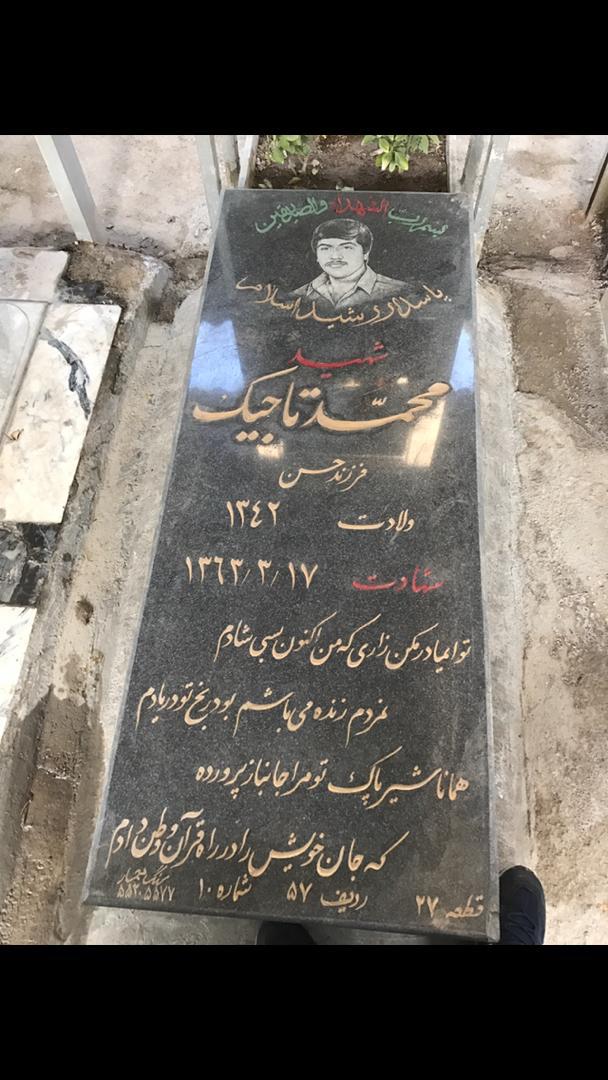 بسم رب الشهداء والصدیقین
یا سالار شهید اسلامی
شهید
محمّد تاجیک
فرزند حسن
ولادت ۱۳٤۲
شهادت ۱۳٦۳/۳/۱۷
تو ای مادر مکن زاری که من اکنون بسی شادم
نمردم زنده می باشم بود رنج تو در یادم
همانا شیر پاک تو مرا جانباز پرورده
که جان خویش را در راه قرآن و وطن دادم
قطعه ۲۷ ردیف ۵۷ شماره ۱۰
۵۵۲۰۵۵۷۷